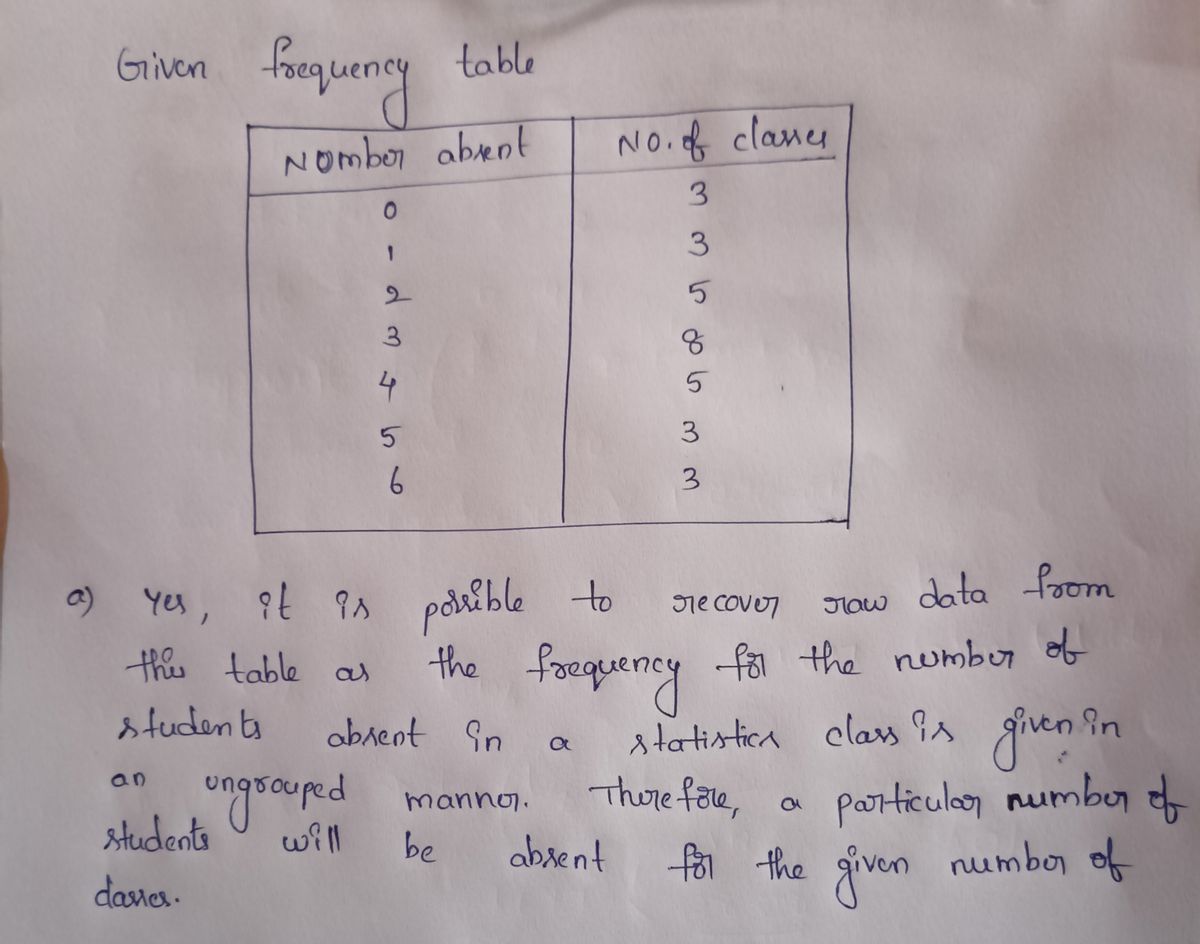 Given frequency table
Number absent No. of classes
0 3
1 3
2 5
3 8
4 5
5 3
6 3
a) Yes, it is possible to recover raw data from
this table as the frequency for the number of
students absent in a statistics class is given in
an ungrouped manner. Therefore, a particular number of
students will be absent for the given number of
classes.